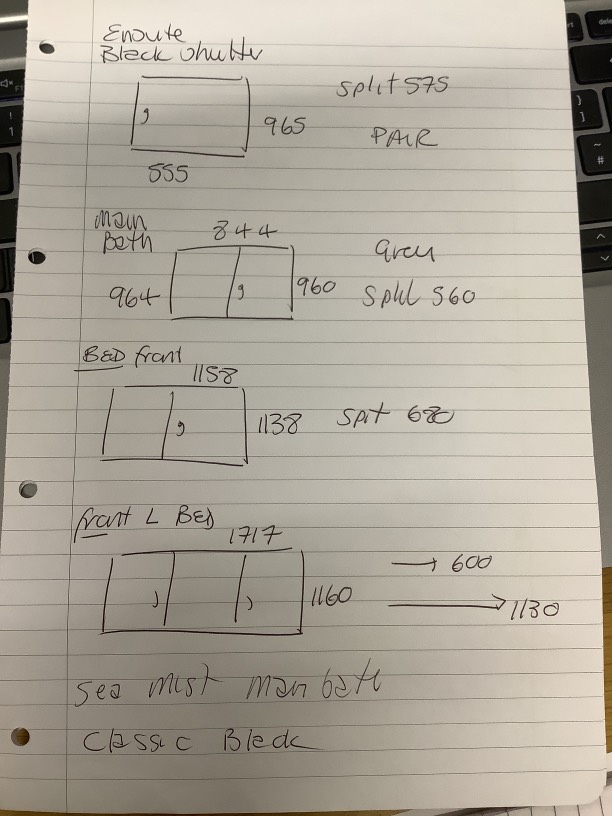 Ensuite
Black shutter
split 575
965
PAIR
555
Main
Bath
844
grey
964
960
split 560
BED front
1158
1138
split 680
front L BED
1717
1160
→ 600
→ 1130
sea mist main bath
Classic Black